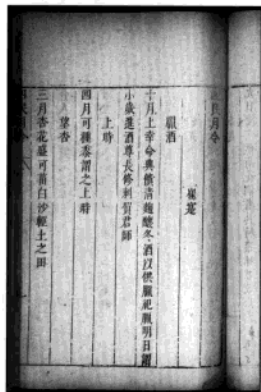 四民月令
崔寔
祖酒
十月上辛命典饋清麹釀冬酒以供臘祀臘明日謂
小歲進酒尊長修刺賀君師
上時
四月可種黍謂之上時
望杏
三月杏花盛可菑白沙輕土之田